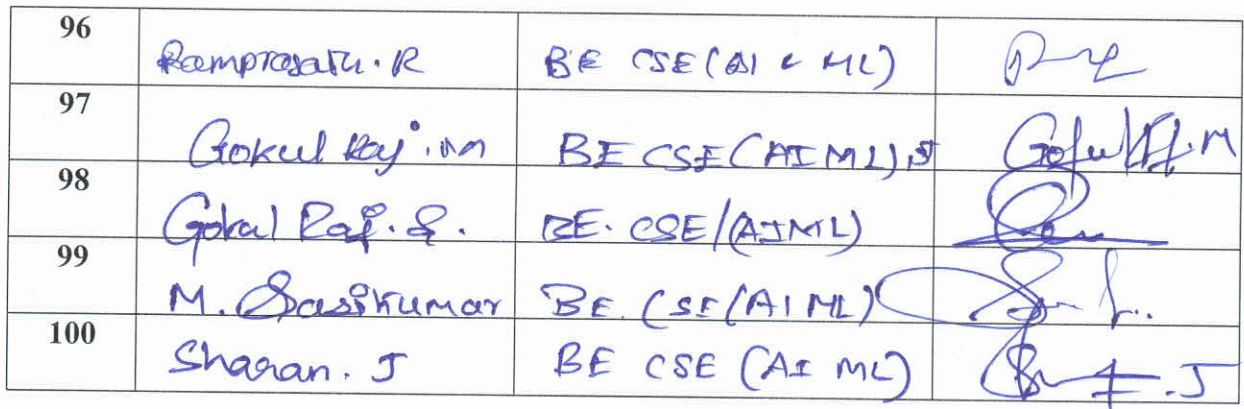 96
Ramprasath. R BE CSE (AI & ML)
97
Gokul Raj. M BE CSE (AI ML)
98
Gokal Raj. S. BE. CSE/(AIML)
99
M. Sasikumar BE. CSE (AI ML)
100
Sharan. J BE CSE (AI ML)